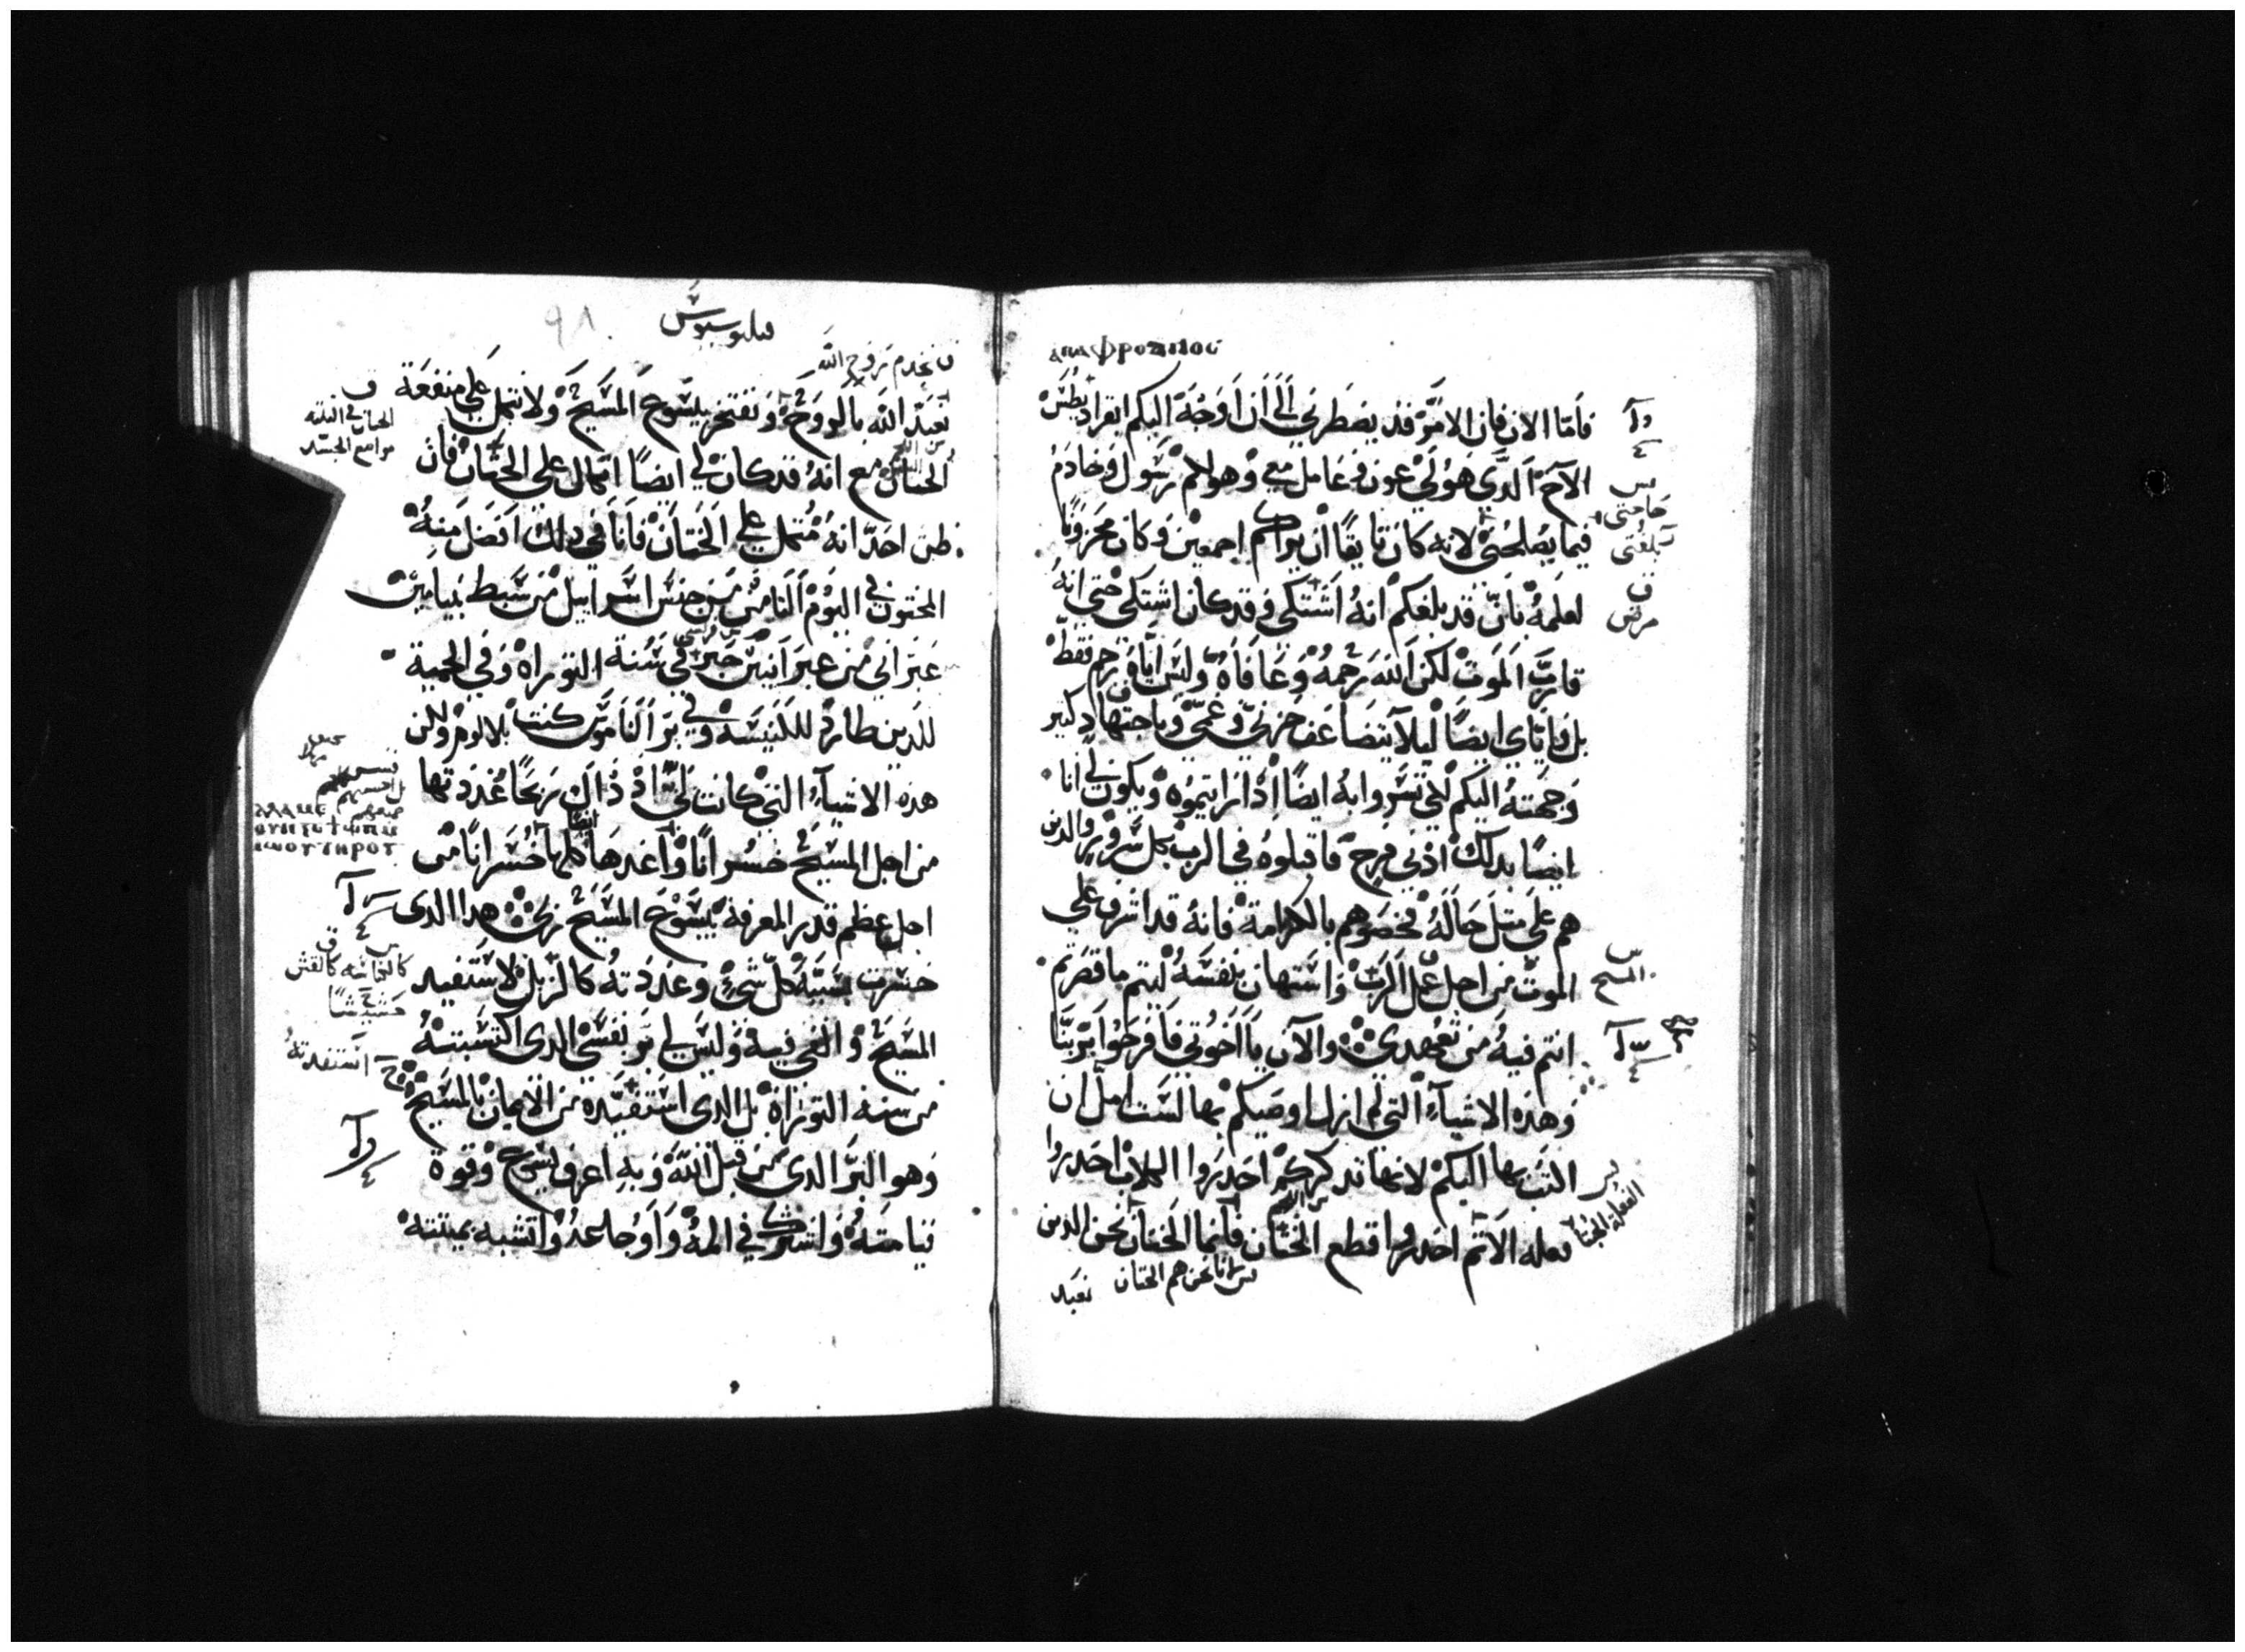 فاما الان فان الامر قد يضطرني الى ان اوجه اليكم ابفراديطس
الاخ الدي هو لي عون وعامل معي وهو لكم رسول وخادم
فيما يصلحني لانه كان تايقا ان يراكم اجمعين وكان محزونا
لعلمه بان قد بلغكم انه اشتكى وقد كان اشتكى حتى انه
قارب الموت لكن الله رحمه وعافاه وليس اياه رحم فقط
بل واياي ايضا ليلا يتضاعف حزني وغمي وباجتهاد كبير
وجهته اليكم لكي تسروا به ايضا ادا رايتموه ويكون لي انا
ايضا بدلك ادنى فرح فاقبلوه في الرب بكل سرور والدين
هم على مثل حاله فخصوهم بالكرامة فانه قد اشرف على
الموت من اجل عمل الرب واستهان بنفسه ليتم ما قصرتم
انتم فيه من تعهدي والان يا اخوتي فافرحوا بربنا
وهذه الاشياء التي لم ازل اوصيكم بها لست امل ان
اكتب بها اليكم لانها تدكركم احدروا الكلاب احدروا
فعله الاثم احدروا قطع الختان فانما الختان نحن الدين
انا نحن هم الختان
نعبد
حاجتي
مرض
المسيح
فيلبوسيوس
٩٨
نخدم بروح الله
نعبد الله بالروح ونفتخر بيسوع المسيح ولا نتكل على منفعة
الختان مع انه قد كان لي ايضا اتكال على الختان فان
ظن احد انه متكل على الختان فانا في دلك افضل منه
المختون في اليوم الثامن من جنس اسراييل من سبط بنيامين
عبراني من عبرانيين حبر في سنة التوراة وفي الحمية
للدين طارد للكنيسة وفي بر الناموس كنت بلا لوم ولكن
هذه الاشياء التي كانت لي اذ ذاك ربحا عددتها
من اجل المسيح خسرانا واعدها كلها خسرانا من
اجل عظم قدر المعرفة بيسوع المسيح ربي هدا الدي
خسرت بسببه كل شيء وعددته كالزبل لاستفيد
المسيح والفى فيه وليس لي بر نفسي الدي اكتسبته
من سنه التوراة بل الدي استفيده من الايمان بالمسيح
وهو البر الدي من قبل الله وبه اعرف يسوع وقوة
قيامته واشترك في المه واوجاعه واتشبه بميتته
مواضع الجسد
استفدته